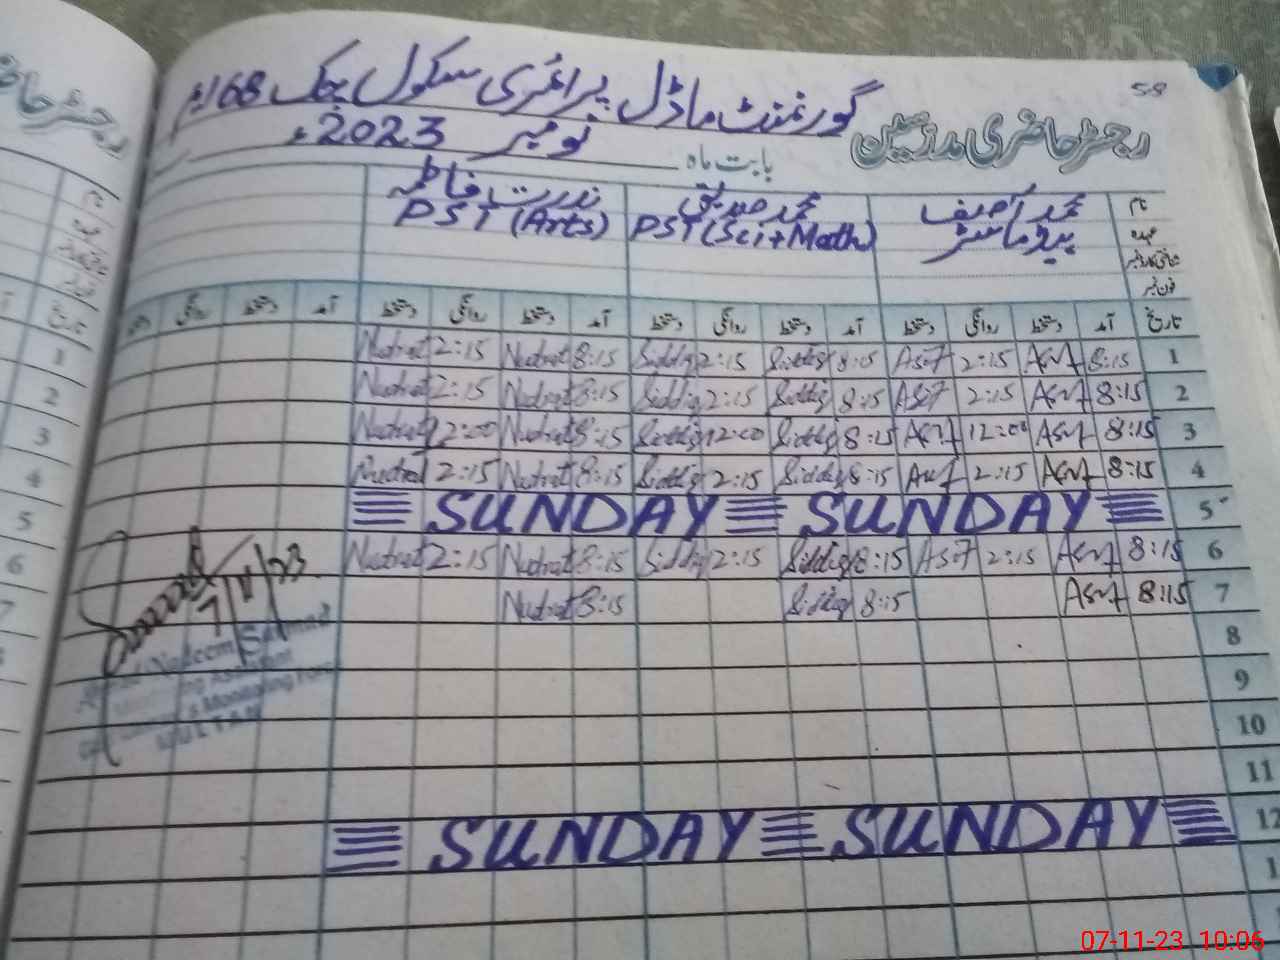 58
گورنمنٹ ماڈل پرائمری سکول چک 168/م
رجسٹر حاضری مدرسین
بابت ماہ نومبر 2023ء
نام محمد آصف محمد صدیق ندرت فاطمہ
عہدہ ہیڈ ماسٹر PST (Sci+Math) PST (Arts)
شناختی کارڈ نمبر
فون نمبر
تاریخ آمد دستخط روانگی دستخط آمد دستخط روانگی دستخط آمد دستخط روانگی دستخط آمد دستخط روانگی دستخط
1 8:15 Asif 2:15 Asif 8:15 Siddiq 2:15 Siddiq 8:15 Nudrat 2:15 Nudrat
2 8:15 Asif 2:15 Asif 8:15 Siddiq 2:15 Siddiq 8:15 Nudrat 2:15 Nudrat
3 8:15 Asif 12:00 Asif 8:15 Siddiq 12:00 Siddiq 8:15 Nudrat 12:00 Nudrat
4 8:15 Asif 2:15 Asif 8:15 Siddiq 2:15 Siddiq 8:15 Nudrat 2:15 Nudrat
5 SUNDAY SUNDAY
6 8:15 Asif 2:15 Asif 8:15 Siddiq 2:15 Siddiq 8:15 Nudrat 2:15 Nudrat
7 8:15 Asif 8:15 Siddiq 8:15 Nudrat
7/11/23
Nadeem
Monitoring
MULTAN
8
9
10
11
12 SUNDAY SUNDAY
07-11-23 10:06